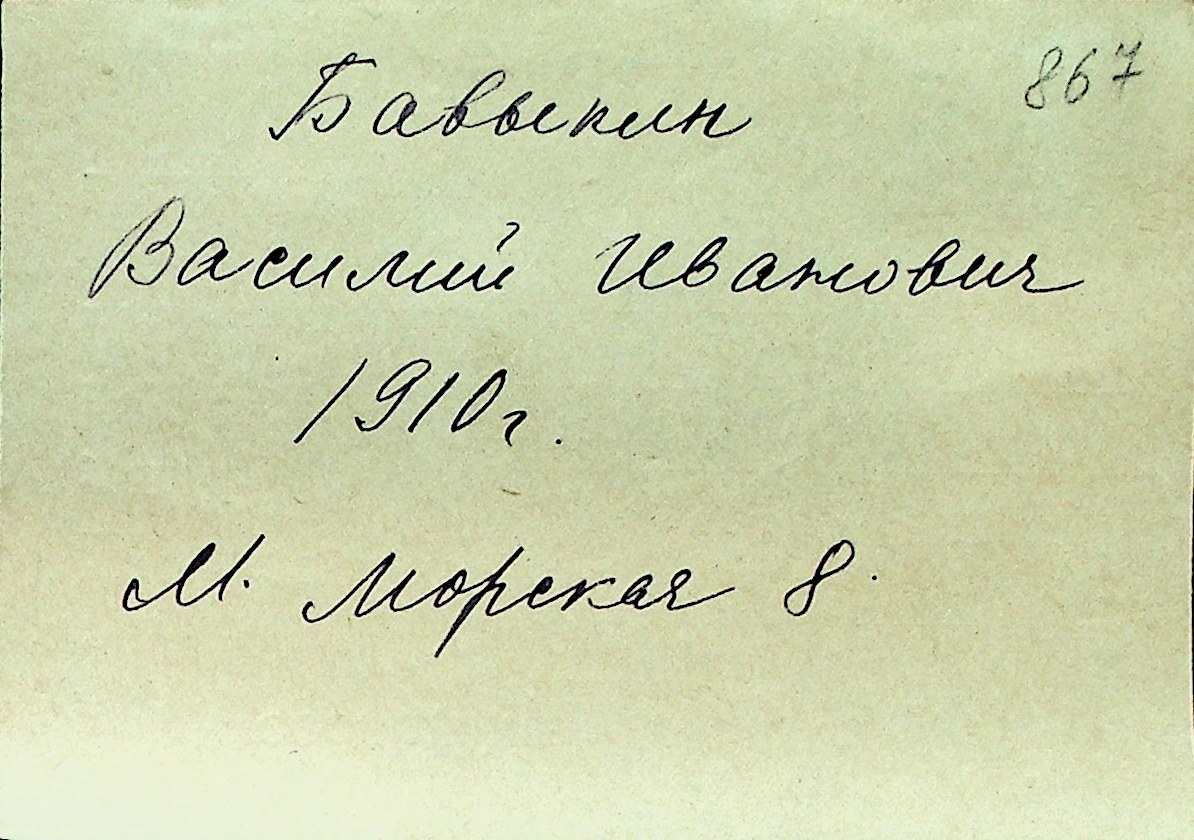 867
Бавыкин
Василий Иванович
1910г.
М. Морская 8.